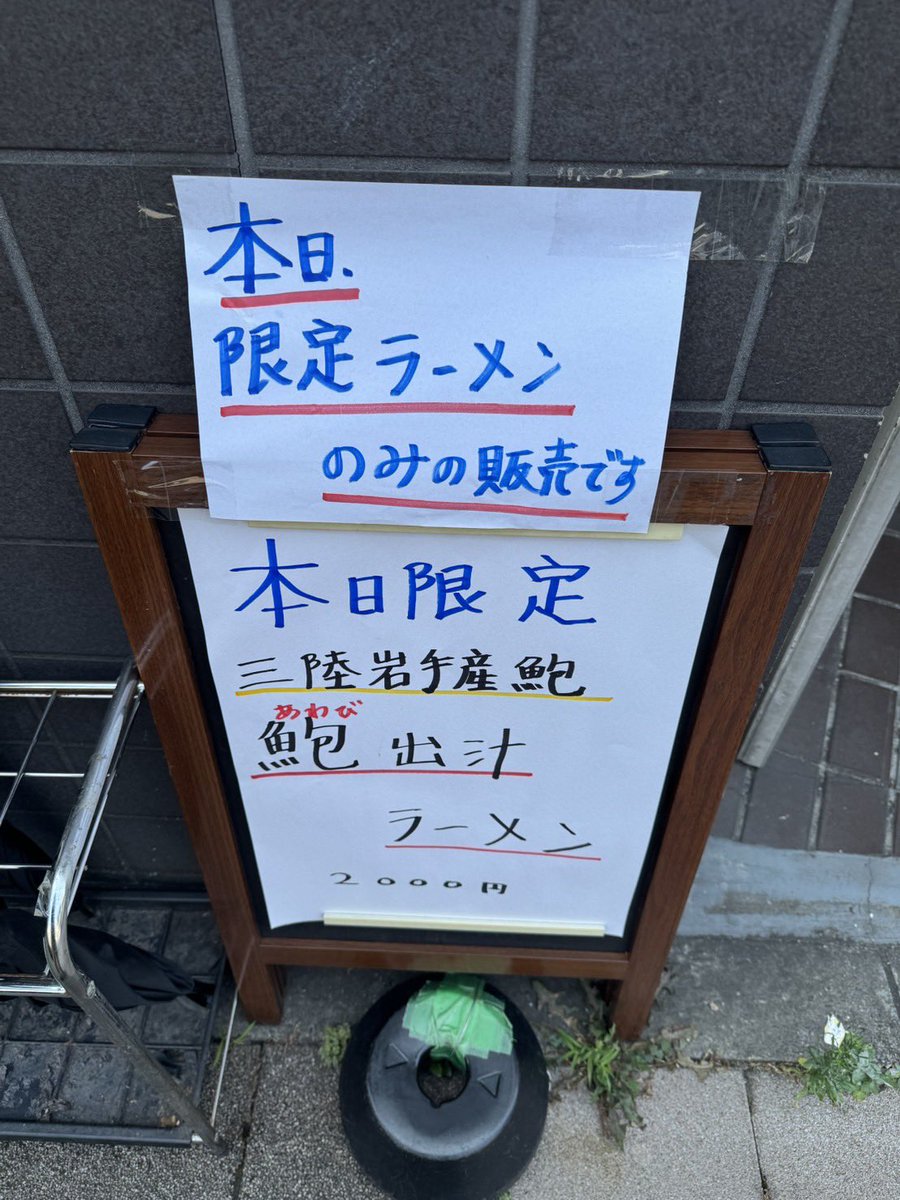 本日、
限定ラーメン
のみの販売です
本日限定
三陸岩手産鮑
あわび
鮑出汁
ラーメン
2000円